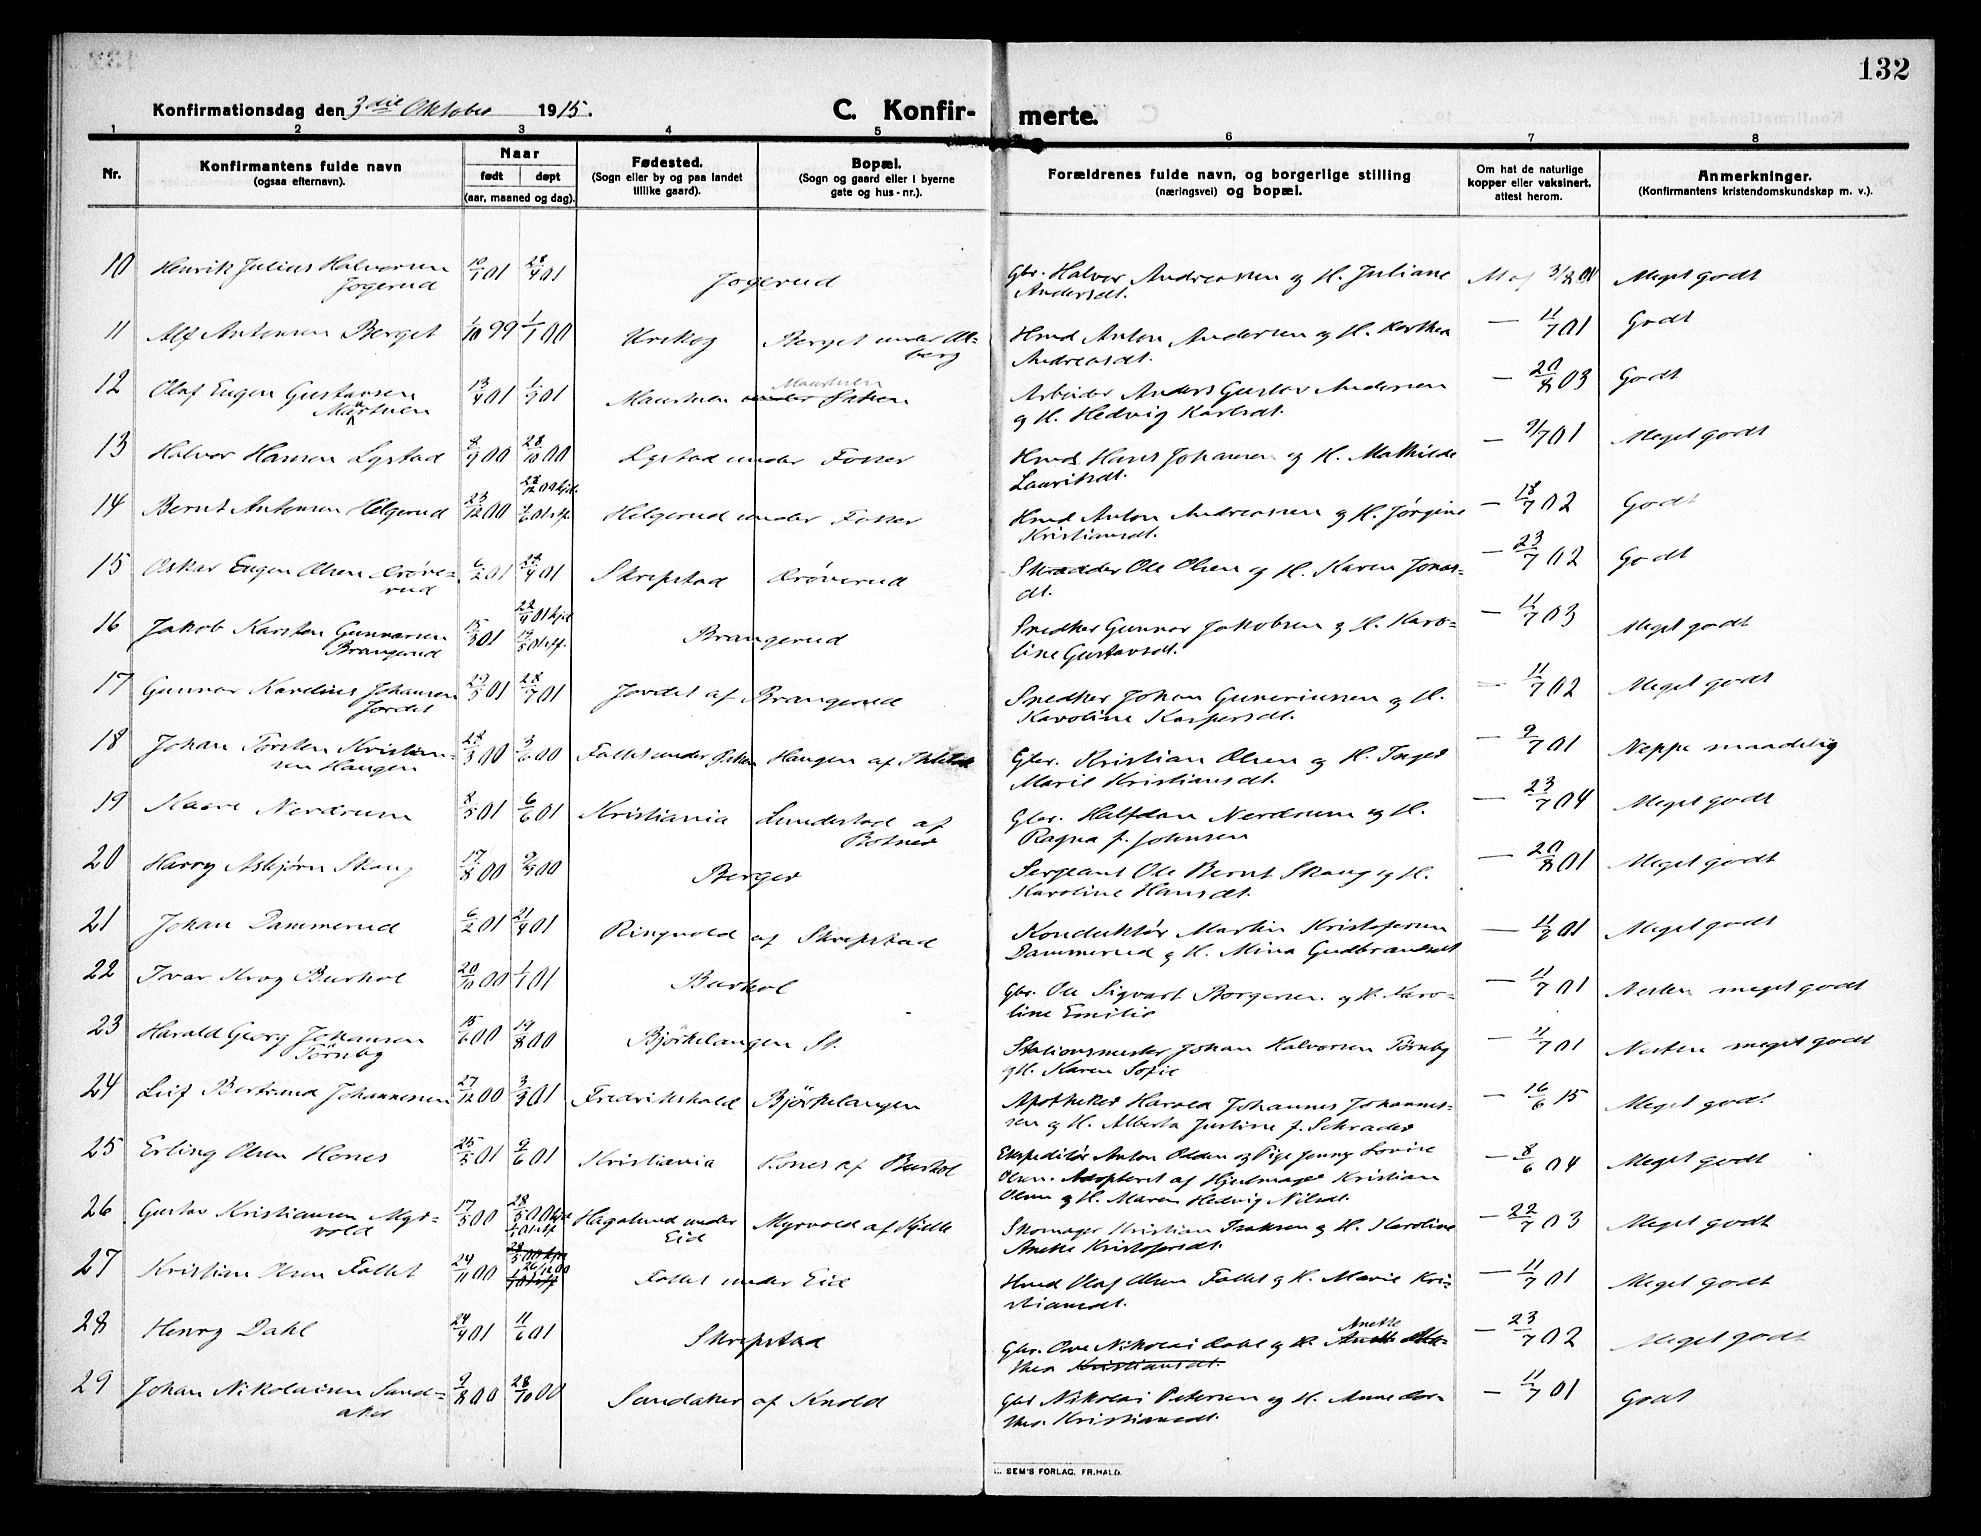 132
Konfirmationsdag den 3die Oktober 1915.
C. Konfirmerte.
1 2 3 4 5 6 7 8
Nr.
Konfirmantens fulde navn
(ogsaa efternavn).
Naar
født døpt
(aar, maaned og dag).
Fødested.
(Sogn eller by og paa landet
tillike gaard).
Bopæl.
(Sogn og gaard eller i byerne
gate og hus-nr.).
Forældrenes fulde navn, og borgerlige stilling
(næringsvei) og bopæl.
Om hat de naturlige
kopper eller vaksinert,
attest herom.
Anmerkninger.
(Konfirmantens kristendomskundskap m. v.).
10 Henrik Julius Halvorsen 10/1 01 28/4 01 Jogerud Gbr. Halvor Andreassen og H. Juliane 3/8 01 Meget godt
Jogerud Andersdt.
11 Alf Antonsen Berget 1/10 99 1/1 00 Urskog Berget under Al- Hmd Anton Andersen og H. Karthea — 11/7 01 Godt
berg Andreasdt.
12 Olaf Eugen Gustavsen 13/4 01 1/5 01 Maurtuen Maurtuen Arbeider Anders Gustav Andersen — 20/8 03 Godt
Maurtuen og H. Hedvig Karlsdt.
13 Halvor Hansen Lystad 8/9 00 28/10 00 Lystad under Fosser Hmd. Hans Johansen og H. Mathilde — 9/7 01 Meget godt
Lauritsdt.
14 Bernt Antonsen Helgerud 23/12 00 Helgerud under Fosser Hmd Anton Andreassen og H. Jørgine — 18/7 02 Godt
Kristiansdt.
15 Oskar Eugen Olsen Drøve- 6/2 01 28/4 01 Skrepstad Drøverud Skrædder Ole Olsen og H. Karen Jonas- — 23/7 02 Godt
rud dt.
16 Jakob Karsten Gunnarsen 15/3 01 Brangerud Snedker Gunnar Jakobsen og H. Karo- — 11/7 03 Meget godt
Brangerud line Gustavsdt.
17 Gunnar Karelius Johansen 29/5 01 28/7 01 Jordet af Brangerud Snedker Johan Guneriussen og H. — 11/7 02 Meget godt
Jordet Karoline Kaspersdt.
18 Johan Torsten Kristian- 28/3 00 3/6 00 Fallet under Haugen af Gbr. Kristian Olsen og H. Inger — 9/7 01 Neppe maadelig
sen Haugen Marie Kristiansdt.
19 Kaare Nerdrum 8/5 01 6/6 01 Kristiania Lundestad af Gbr. Halfdan Nerdrum og H. — 23/7 04 Meget godt
Botner Ragna f. Johnsen
20 Harry Asbjørn Skaug 17/8 00 9/9 00 Berger Sergeant Ole Bernt Skaug og H. — 20/8 01 Meget godt
Karoline Hansdt.
21 Johan Dammerud 6/2 01 21/4 01 Ringvold af Skrepstad Konduktør Martin Kristofersen — 11/8 01 Meget godt
Dammerud og H. Mina Gudbrandsdt
22 Ivar Krog Burhol 20/10 00 1/1 01 Burhol Gbr. Ole Sigvart Borgersen og H. Karo- — 11/7 01 Nesten meget godt
line Emilie
23 Harald Georg Johansen 15/6 00 19/8 00 Bjørkelangen St. Stationsmester Johan Halvorsen Tørnby — 11/7 01 Nesten meget godt
Tørnby og H. Karen Sofie
24 Leif Bertrand Johannessen 27/12 00 3/3 01 Fredrikshald Bjørkelangen Apotheker Harald Johannes Johannes- — 16/6 15 Meget godt
sen og H. Alberta Justine f. Schrader
25 Erling Olsen Hones 25/5 01 9/6 01 Kristiania Hones af Burhol Ekspeditør Anton Olsen og Pige Jenny Lovise — 8/6 04 Meget godt
Olsen. Adopteret af Hjulmager Kristian
Olsen og H. Maren Hedvig Nilsdt.
26 Gustav Kristiansen Myr- 17/5 00 Hagalund under Myrvold af Kjelle Skomager Kristian Isaksen og H. Karoline — 22/7 03 Meget godt
vold Eid Anette Kristofersdt.
27 Kristian Olsen Fallet 24/11 00 26/12 00 Fallet under Eid Hmd Olaf Olsen Fallet og H. Marie Kri- — 11/7 01 Meget godt
stiansdt.
28 Henry Dahl 24/4 01 11/6 01 Skrepstad Gbr. Ove Nikolai Dahl og H. Anette — 23/7 02 Meget godt
thea Kristiansdt.
29 Johan Nikolaisen Sand- 9/8 00 28/10 00 Sandaker af Knold Gbr Nikolai Petersen og H. Anne Dor- — 11/7 01 Godt
aker thea Kristiansdt.
SEM'S FORLAG. FR.HALD.